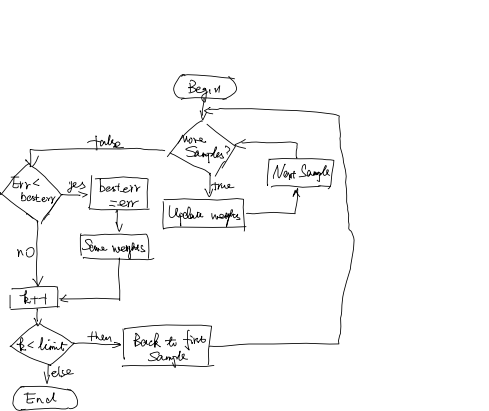 Begin
false
more
Samples?
Next Sample
true
Update weights
Err <
besterr
yes
besterr
= err
Save weights
no
k++
k < limit
then
Back to first
Sample
else
End